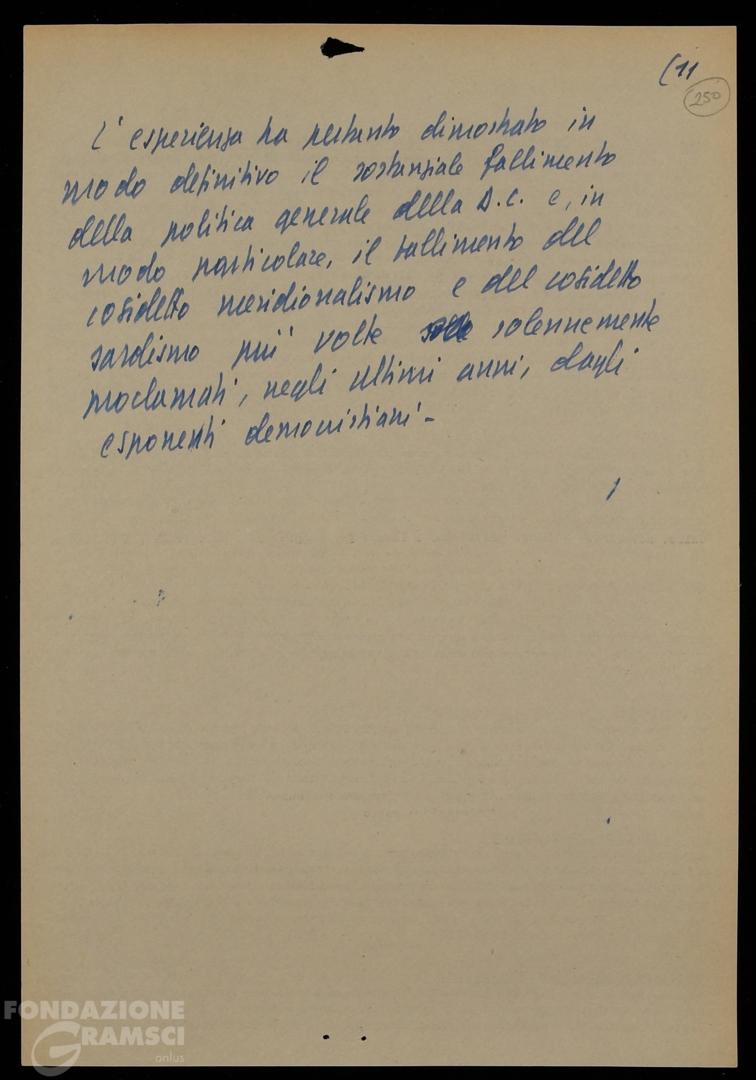 (11
250
L'esperienza ha pertanto dimostrato in
modo definitivo il sostanziale fallimento
della politica generale della D.C. e, in
modo particolare, il fallimento del
cosidetto meridionalismo e del cosidetto
sardismo più volte solennemente
proclamati, negli ultimi anni, dagli
esponenti democristiani -
FONDAZIONE
GRAMSCI
onlus